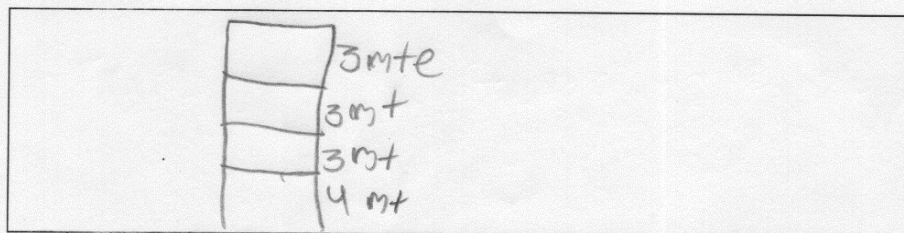 3 mte
3 mt
3 mt
4 mt